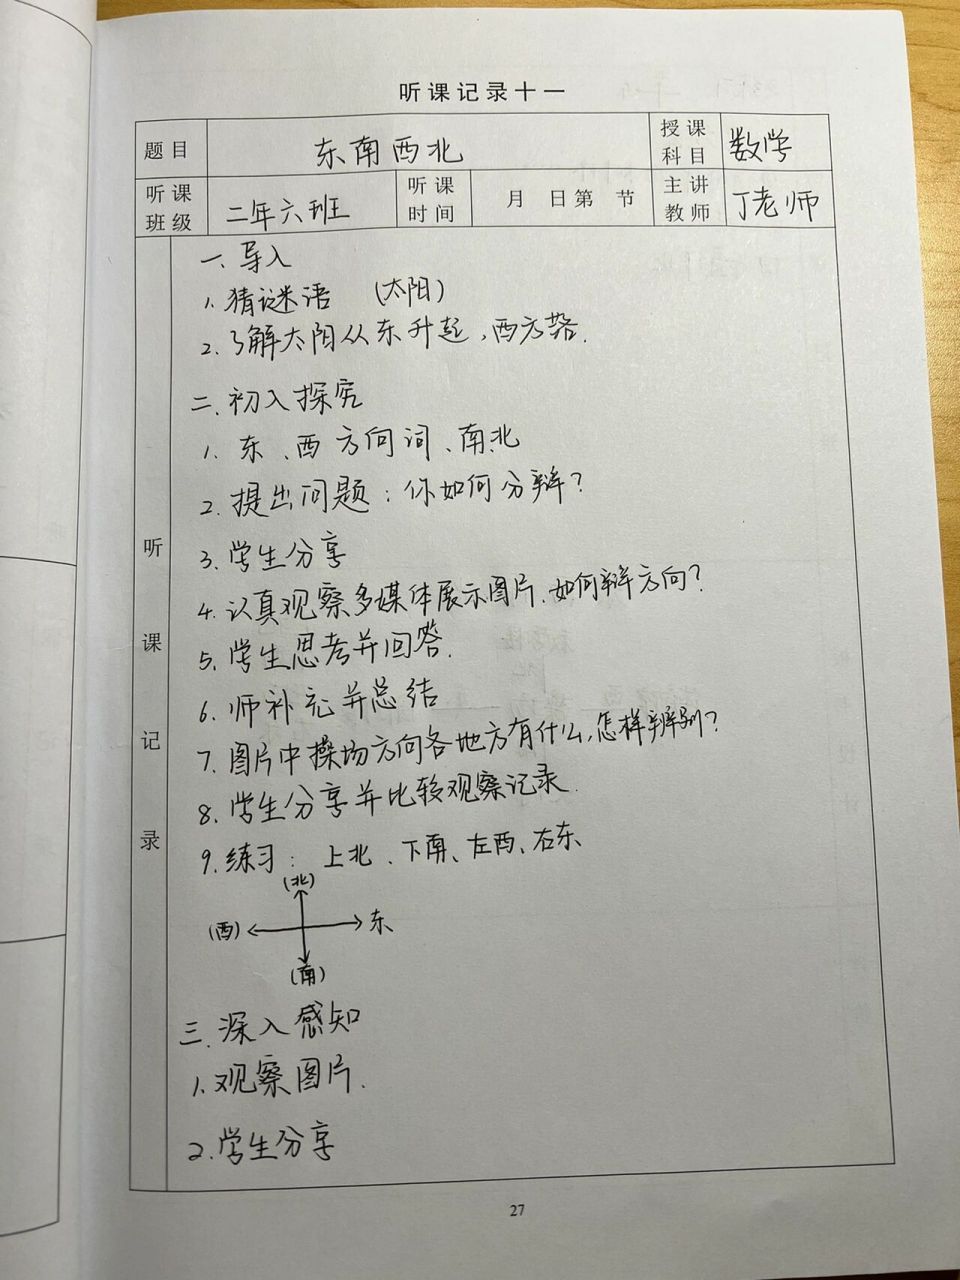 听课记录十一
题目 东南西北 授课科目 数学
听课班级 二年六班 听课时间 月 日第 节 主讲教师 丁老师
听课记录
一、导入
1. 猜谜语 (太阳)
2. 了解太阳从东升起,西方落.
二、初入探究
1. 东、西方向词、南北
2. 提出问题:你如何分辩?
3. 学生分享
4. 认真观察多媒体展示图片、如何辩方向?
5. 学生思考并回答.
6. 师补充并总结
7. 图片中操场方向各地方有什么,怎样辨别?
8. 学生分享并比较观察记录.
9. 练习: 上北、下南、左西、右东
(北)
(西) 东
(南)
三、深入感知
1. 观察图片.
2. 学生分享
27